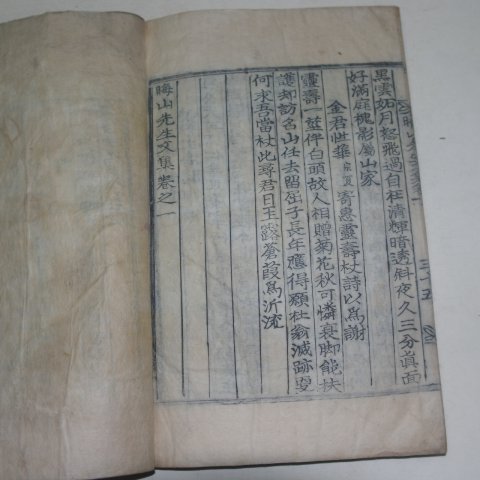 黑雲如月怒飛過自在清輝暗透斜夜久三分眞面
好滿庭槐影屬山家
金君世華京夏寄惠靈壽杖詩以爲謝
靈壽一莖伴白頭故人相贈菊花秋可憐衰脚能扶
護却訪名山任去留屈子長年應得類杜翁滅跡更
何求吾當杖此尋君日玉露蒼葭爲沂流
晦山先生文集卷之一